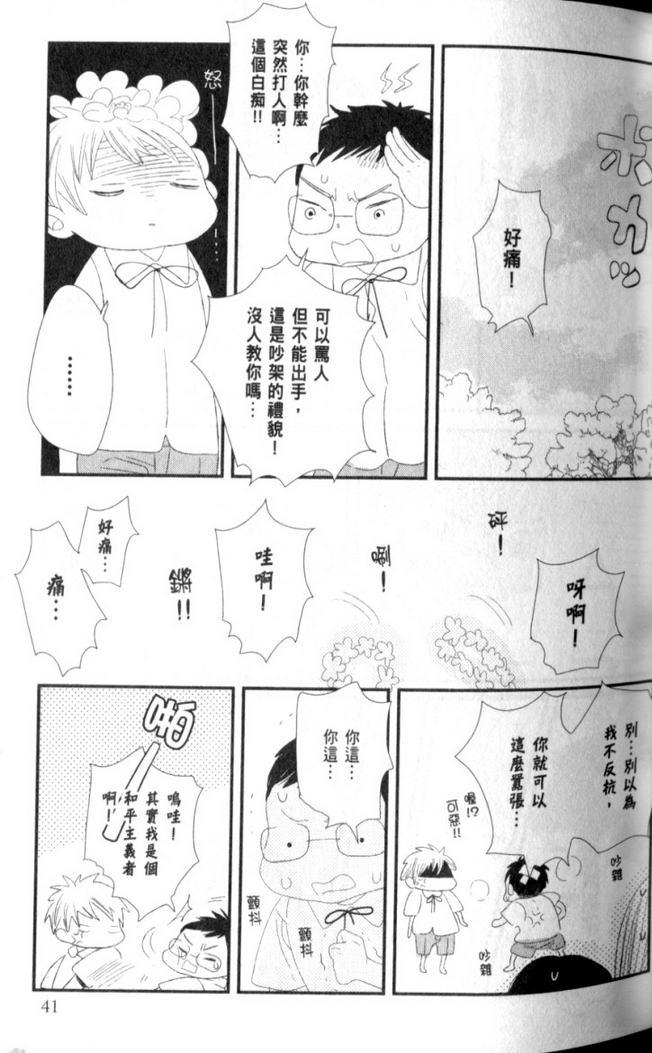 ポカッ
好痛！
你…你幹麼
突然打人啊…
這個白痴!!
可以罵人
但不能出手，
這是吵架的禮貌！
沒人教你嗎…
怒
……
呀啊！
砰！
唰！
哇啊！
鏘!!
好痛…
痛…
別…別以為
我不反抗，
你就可以
這麼囂張…
喔!?
可惡!!
吵雜
吵雜
你這…
你這…
顫抖
顫抖
啪
嗚哇！
其實我是個
和平主義者
啊！
41